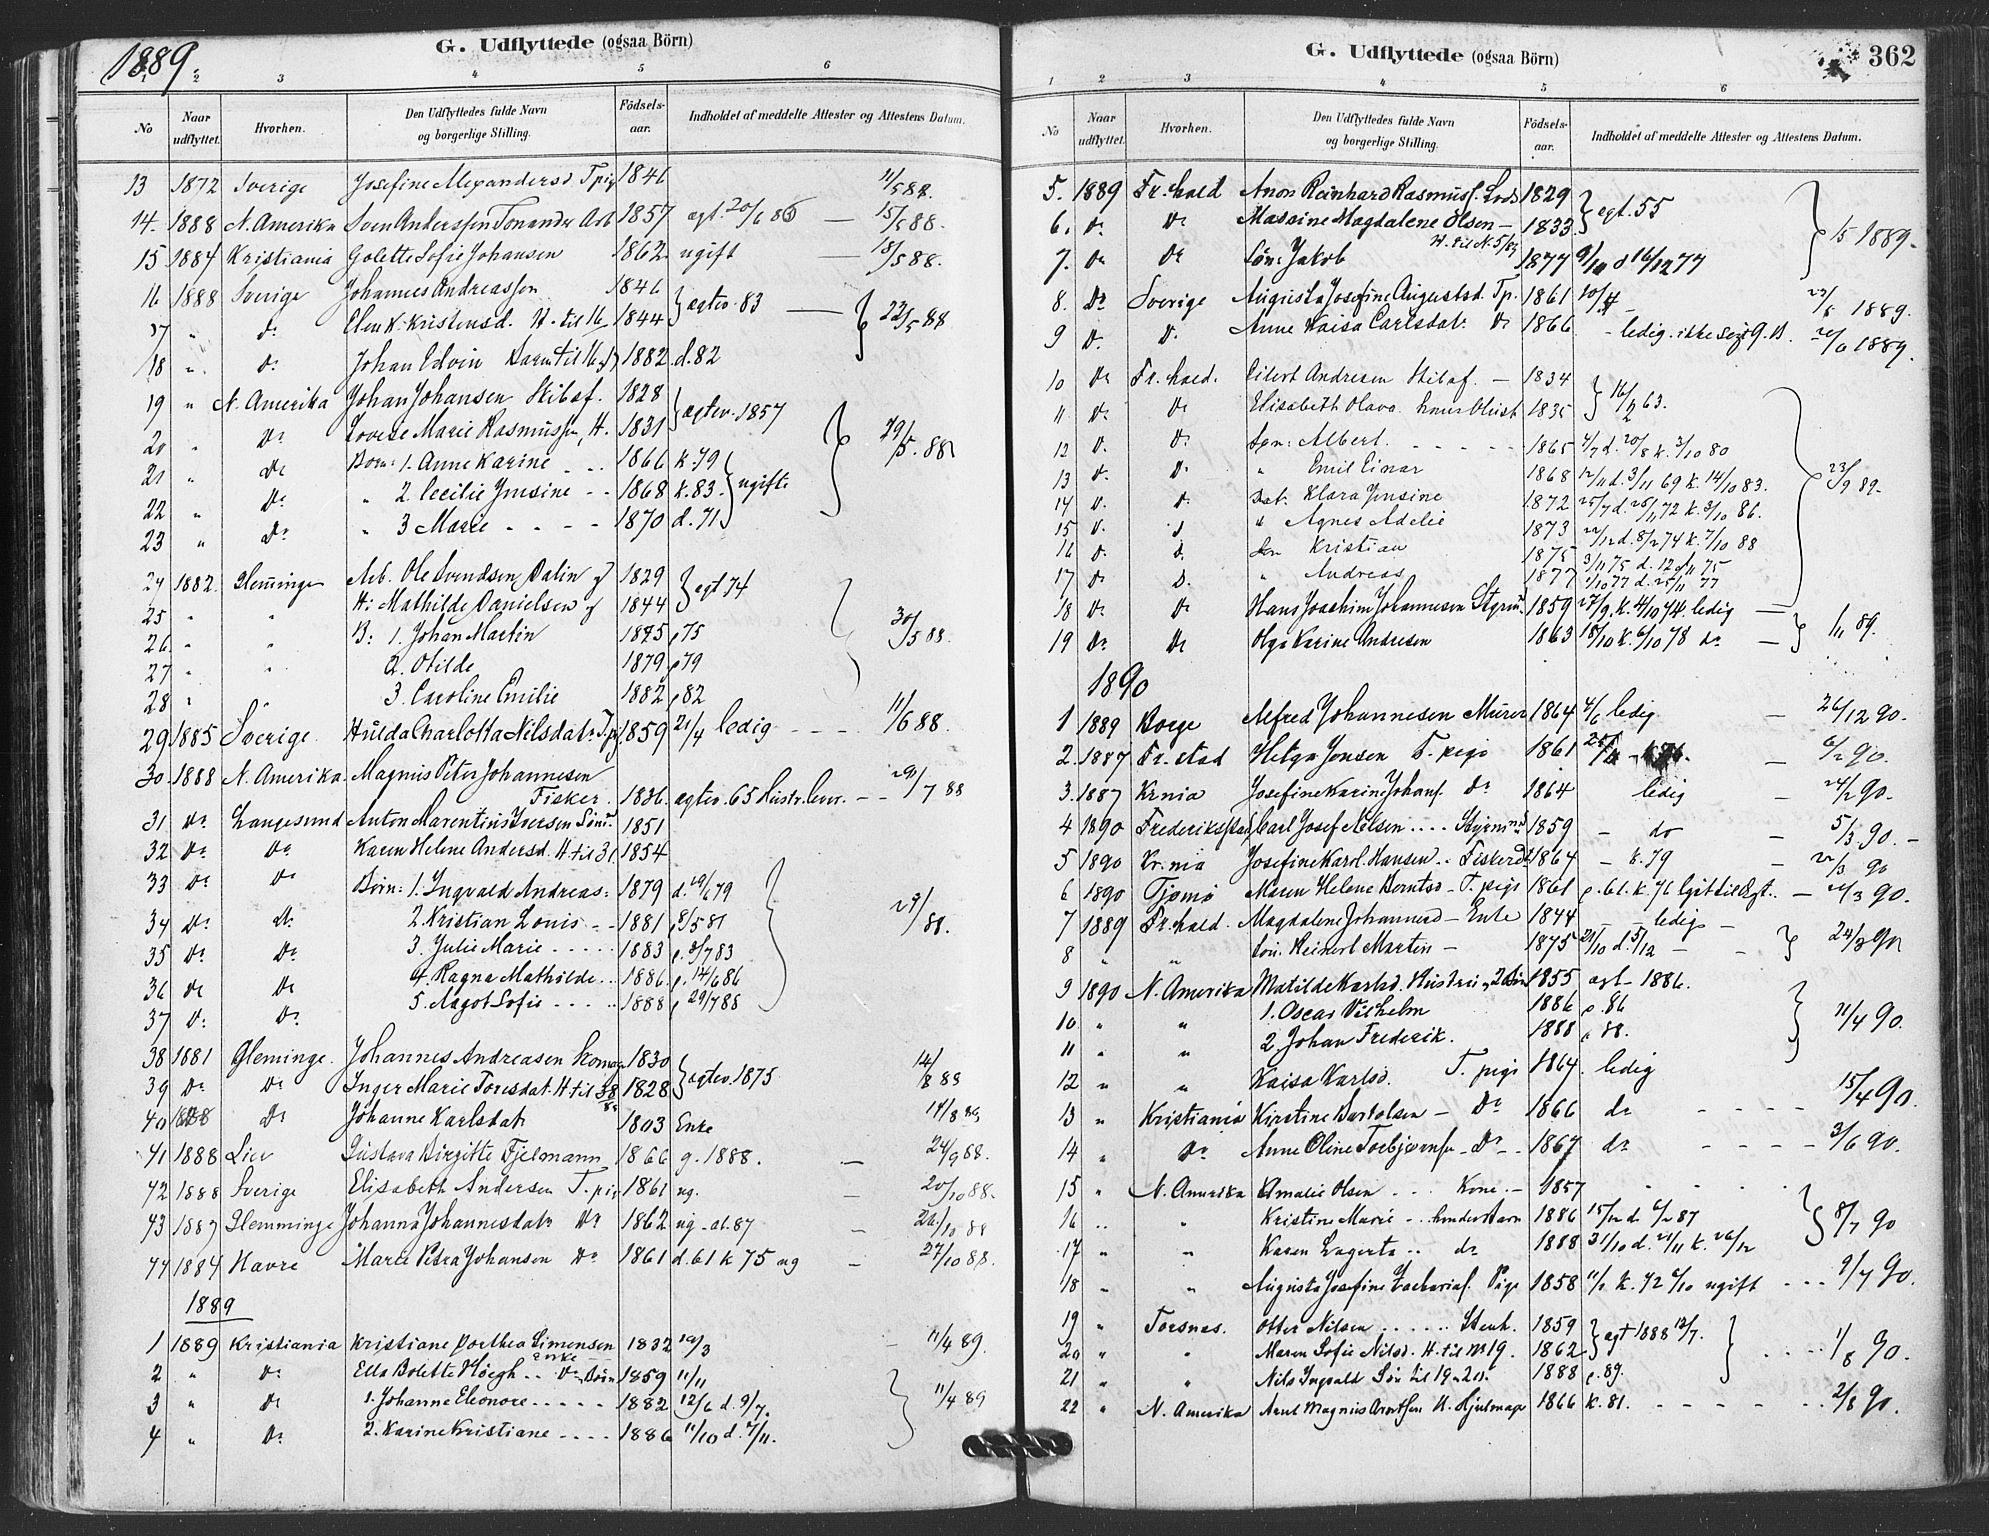 1889
G. Udflyttede (ogsaa Börn)
1 2 3 4 5 6
No Naar udflyttet. Hvorhen. Den Udflyttedes fulde Navn og borgerlige Stilling. Födsels-aar. Indholdet af meddelte Attester og Attestens Datum.
13 1872 Sverige Josefine Alexandersd. Tpig 1846 11/5 88.
14. 1888 N. Amerika Sven Anderssen Tonander Arb 1857 egt. 20/6 86 — 15/5 88.
15 1884 Kristiania Golette Sofie Johansen 1862 ugift — 18/5 88.
16 1888 Sverige Johannes Andreassen 1846 } egtev. 83 — 22/5 88
17 " do Elen K. Kristensd. H. til 16 1844
18 " do Johan Edvin Barn til 16 1882 d. 82
19 " N. Amerika Johan Johansen Skibsf. 1828 } egtev. 1857 29/5. 88
20 " Do Lovise Marie Rasmussen, H. 1831
21 " Do Børn: 1. Anne Karine 1866 k. 79
22 " Do " 2 Cecilie Jensine 1868 k. 83. } ugifte
23 " Do " 3 Marie 1870 d. 71
24 1882 Glemminge Arb. Ole Svendsen Dalin 1829 } egt 74
25 " " H: Mathilde Danielsen 1844
26 " " B: 1. Johan Martin 1875 75 30/5 88.
27 " " 2. Otilde 1879 79
28 " " 3. Caroline Emilie 1882 82
29 1885 Sverige Hulda Charlotta Nilsdatr. Tpg 1859 21/4 ledig 11/6 88.
30 1888 N. Amerika Magnus Peter Johannesen
Fisker. 1836 egtev. 65 Hustr. lever. 29/7 88
31 Do Langesund Anton Marentius Iversen Sömd. 1851
32 Do Do Karen Helene Andersd. H til 31 1854
33 Do Do Børn: 1. Ingvald Andreas 1879 d. 29/6 79
34 Do Do 2. Kristian Louis 1881 8/5 81
35 Do Do 3. Julie Marie 1883 8/7 83
36 Do Do 4. Ragna Mathilde 1886 14/6 86
37 Do Do 5. Aagot Sofie 1888 29/7 88
38 1881 Gleminge Johannes Andreasen Skomag 1830 } egtev. 1875 14/8 88
39 Do Do Inger Marie Toresdat. H til 38 1828
40 1888 Do Johanne Karlsdatr 1803 Enke 14/8 88
41 1888 Lier Gustava Birgitte Fjelmann 1866 g. 1888. — 24/9 88.
42 1888 Sverige Elisabeth Andersen T. pig 1861 ug. — 20/10 88.
43 1887 Glemminge Johanna Johannesdatr Do 1862 ug - at. 87 — 26/10 88
44 1884 Havre Marie Petra Johansen Do 1861 d. 61 k 75 ug — 27/10 88.
1889
1 1889 Kristiania Kristiane Dorthea Simonsen 1832 10/3 — 11/4 89.
Enke
2 " Do Ella Bolette Høegh Børn 1859 11/11
3 " Do 1. Johanne Eleonore 1882 12/6 d. 9/7. 11/4 89
4 " Do 2. Karine Kristiane 1886 11/10 d. 7/11.
362
G. Udflyttede (ogsaa Börn)
1 2 3 4 5 6
No Naar udflyttet. Hvorhen. Den Udflyttedes fulde Navn og borgerlige Stilling. Födsels-aar. Indholdet af meddelte Attester og Attestens Datum.
5. 1889 Fr. hald Anon Reinhard Rasmuss. Lods 1829 } egt. 55
6. Do Do Massine Magdalene Olsen 1833
H. til N. 5
7. Do Do Søn: Jakob 1877 9/10 d 16/12 77 1889.
8. Do Sverige Augusta Josefine Augustsd. Tp. 1861 1889.
9 Do Do Anne Kaisa Carlsdatr Do 1866 - ledig 20/6 1889.
10 Do Fr. hald. Eilert Andresen Skibsf. 1834 } 16/2 63.
11 Do Do Elisabeth Olava 1835
12 Do Do Søn: Albert 1865 4/7 d. 20/8 k. 3/10 80
13 Do Do " Emil Einar 1868 12/11 d. 3/11 69 k. 14/10 83. 23/9 89.
14 Do Do Dat. Klara Jensine 1872 25/7 d. 26/11 72 k. 3/10 86.
15 Do Do " Agnes Adelie 1873 22/12 d. 8/2 74 k. 7/10 88
16 Do Do Søn Kristian 1875 3/11 75 d. 12/11 75
17 Do Do " Andreas 1877 1/10 77 d. 25/11 77
18 Do Do Hans Joachim Johannesen Styrm. 1859 27/9. k. 4/10 74 ledig — } 1/11 89.
19 Do Do Olga Karine Andresen 1863 18/10 k. 6/10 78 do
1890
1 1889 Borge Alfred Johannesen Murer 1864 4/6 ledig — 26/12 90.
2. 1887 Fr. stad Helga Jensen T. pige 1861 — 6/2 90.
3. 1887 Krnia Josefine Karine Johans. Do 1864 ledig — 24/2 90.
4 1890 Frederiksstad Carl Josef Nelsen Styrmnd 1859 — do — 5/3 90.
5 1890 Kr. nia Josefine Karol. Hansen Fiskerd. 1864 — k. 79 — 90
6 1890 Tjømø Maren Helene Berntsd. T. pige 1861 61. k. 76 — 90.
7 1889 Fr. hald. Magdalene Johannesd. Enke 1844 — ledig —
8 " " Søn. Reinert Martin 1875 29/10 d. 5/12 — } 24/3 90
9 1890 N. Amerika Matilde Karlsd. Hustru, 2 Børn 1855 egt. 1886.
10. " " 1. Oscar Vilhelm 1886 86 11/4 90.
11 " " 2. Johan Frederik. 1888 88.
12 " " Kaisa Karlsd. T. pige 1864. ledig 15/4 90.
13 " Kristiania Kirstine Bertolsen — Do 1866 do
14 " Do Anne Oline Torbjørnsen Do 1867 do 3/6 90.
15 " N. Amerika Amalie Olsen Kone 1857
16 " " Kristine Marie hendes Barn 1886 15/12 d. 6/2 87 8/7 90
17 " " Karen Lagerta do 1888 31/10 d. 21/11 k. 26/12
18 " " Augusta Josefine Zachariasf. Pige 1858 11/2 k. 72 6/10 ugift 9/7 90.
19 " Torsnes. Otter Nilsen Stenh. 1859 } egt 1888 12/7.
20 " " Maren Sofie Nilsd. H. til No 19. 1862 1/8 90.
21 " " Nils Ingvald Søn til 19 & 20. 1888 89.
22 " N. Amerika Arnt Magnus Arntsen U. Hjulmager 1866 k. 81. 2/8 90.